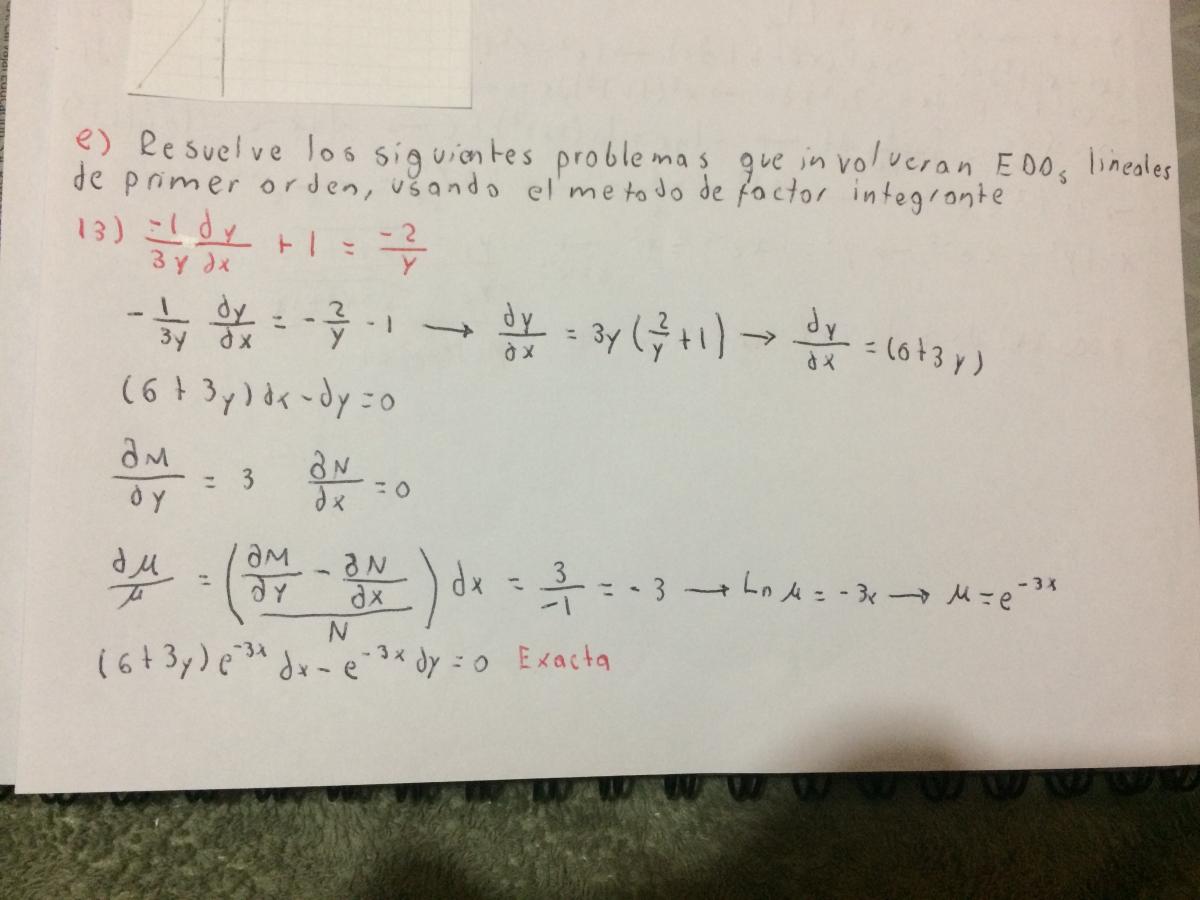 e) Resuelve los siguientes problemas que involucran EDOs lineales
de primer orden, usando el metodo de factor integrante
13) -1/3y dy/dx + 1 = -2/y
- 1/3y dy/dx = - 2/y - 1 → dy/dx = 3y (2/y + 1) → dy/dx = (6+3y)
(6 + 3y) dx - dy = 0
∂M/∂y = 3 ∂N/∂x = 0
dμ/μ = ((∂M/∂y - ∂N/∂x)/N) dx = 3/-1 = -3 → Ln μ = -3x → μ = e^-3x
(6+3y) e^-3x dx - e^-3x dy = 0 Exacta